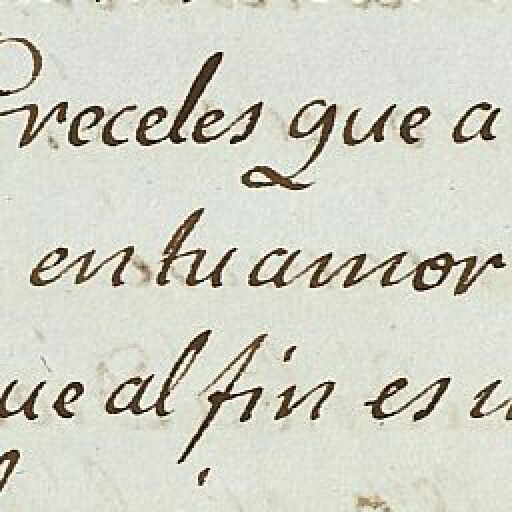 receles que a
en tu amor
ue al fin es u